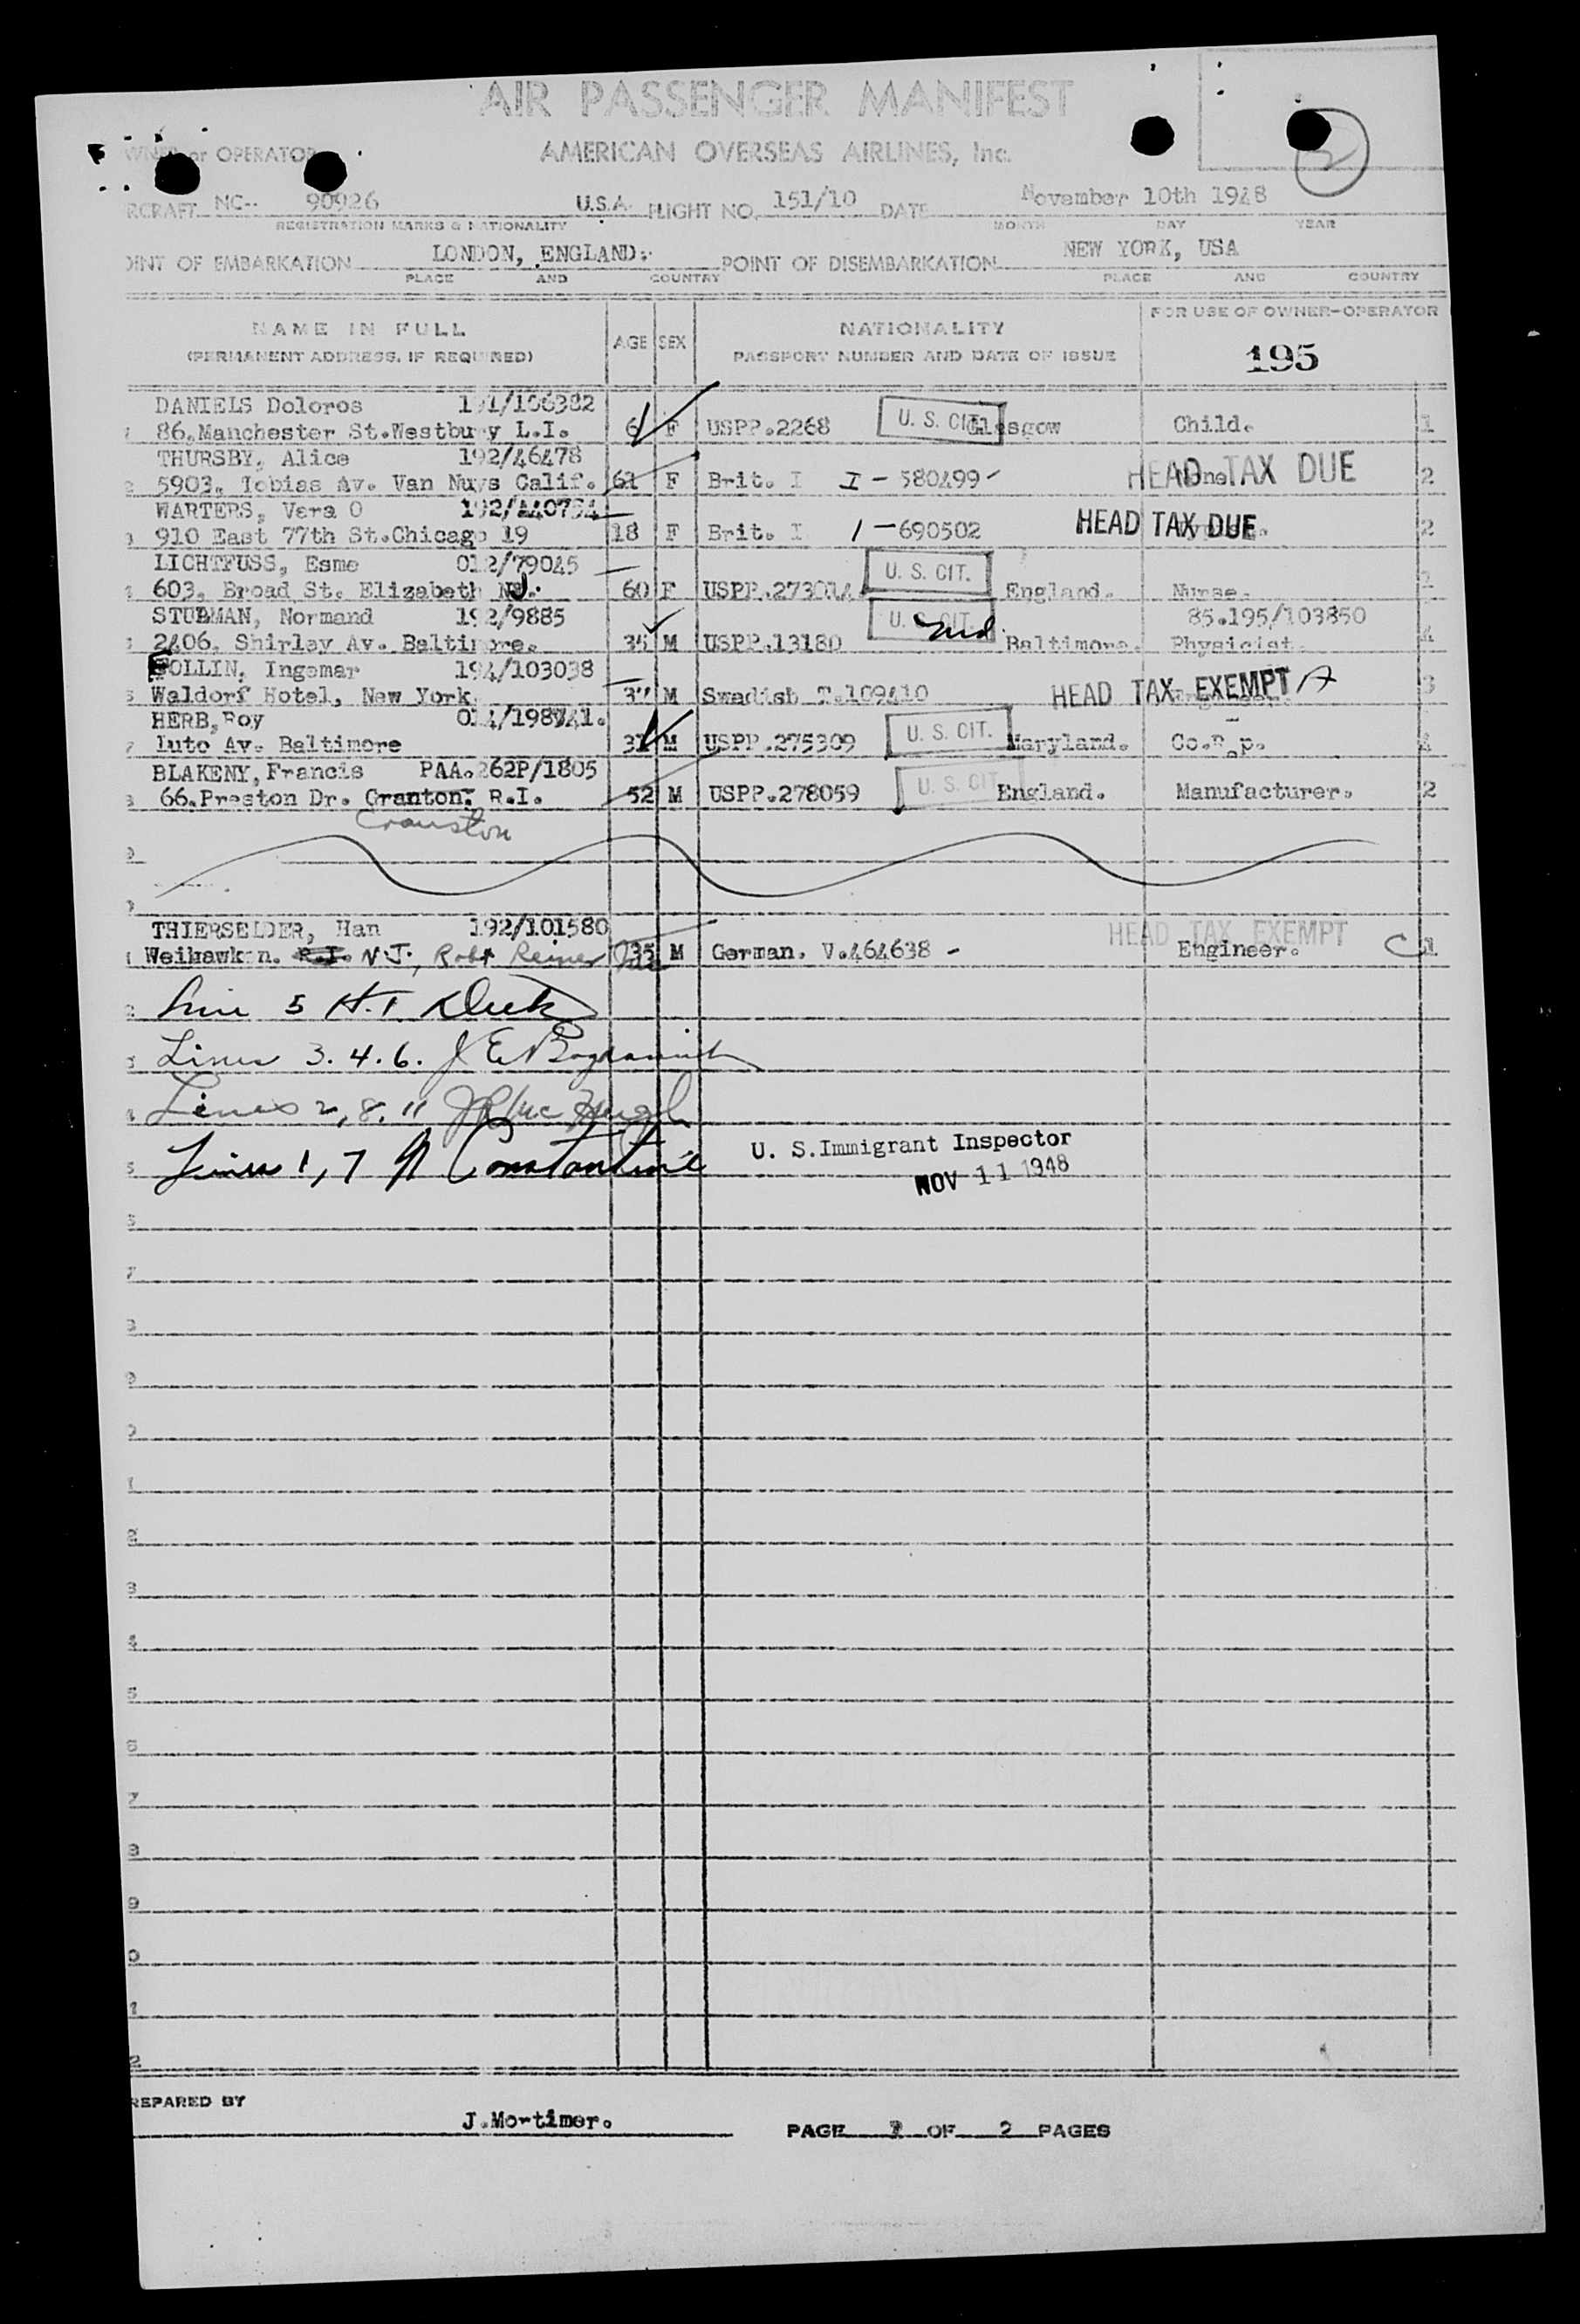 AIR PASSENGER MANIFEST
OWNER or OPERATOR AMERICAN OVERSEAS AIRLINES, Inc. 2
RCRAFT NC-- 90926 U.S.A. FLIGHT NO. 151/10 DATE November 10th 1948
REGISTRATION MARKS & NATIONALITY MONTH DAY YEAR
OINT OF EMBARKATION LONDON, ENGLAND. POINT OF DISEMBARKATION NEW YORK, USA
PLACE AND COUNTRY PLACE AND COUNTRY
NAME IN FULL AGE SEX NATIONALITY FOR USE OF OWNER-OPERATOR
(PERMANENT ADDRESS, IF REQUIRED) PASSPORT NUMBER AND DATE OF ISSUE 195
DANIELS Doloros 191/106382
86.Manchester St.Westbury L.I. 6 F USPP.2268 U. S. CIT. Glasgow Child. 1
THURSBY, Alice 192/46478
5903. Tobias Av. Van Nuys Calif. 61 F Brit. I I - 580499 - HEAD TAX DUE None 2
WARTERS, Vera O
910 East 77th St.Chicago 19 18 F Brit. I 1 - 690502 HEAD TAX DUE 2
LICHTFUSS, Esme 012/79045
603. Broad St. Elizabeth NJ. 60 F U. S. CIT. England. Nurse.
STUBMAN, Normand 192/9885 85.195/103850
2406. Shirley Av. Baltimore. 35 M USPP.13180 U. S. CIT. Md. Baltimore. Physicist. 4
FOLLIN, Ingemar 194/103038
Waldorf Hotel, New York. M Swedish T.109410 HEAD TAX EXEMPT A 3
HERB, Roy
Luto Av. Baltimore M USPP.275309 U. S. CIT. Maryland. Co.Rep.
BLAKENY, Francis PAA.262P/1805
66.Preston Dr. Granton. R.I. 52 M USPP.278059 U. S. CIT England. Manufacturer. 2
Cranston
THIERSELDER, Han 192/101580 HEAD TAX EXEMPT
Weihawken. R.I. N.J., Robt Reiner 35 M German. V.464638 - Engineer. C 1
Line 5 H.T.
Lines 3. 4. 6. J E
Lines 2, 8, 11 JP McHugh
Lines 1, 7 Constantine
U. S. Immigrant Inspector
NOV 11 1948
REPARED BY J.Mortimer. PAGE OF 2 PAGES